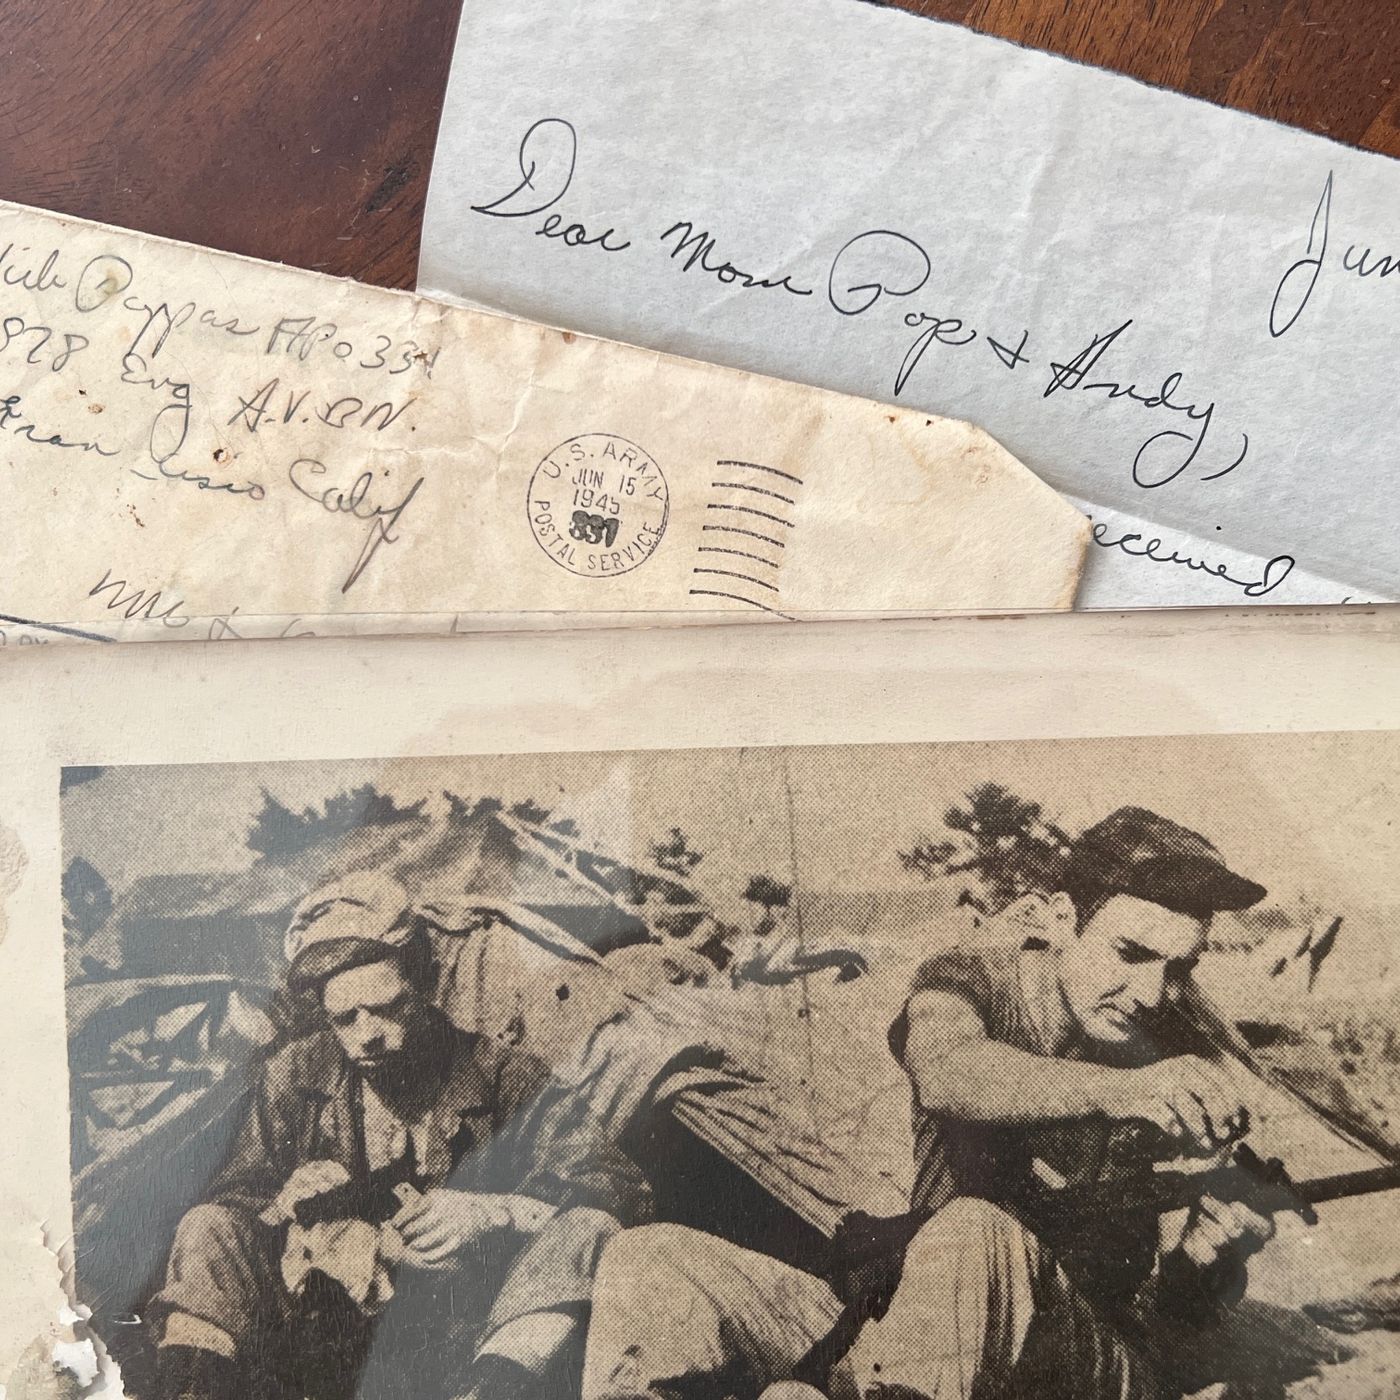 Dear Mom Pop & Andy,
Jun
eceived
Pappas APO 331
878 Eng A.V.BN.
Fran Calif
U.S. ARMY
JUN 15
1945
331
POSTAL SERVICE